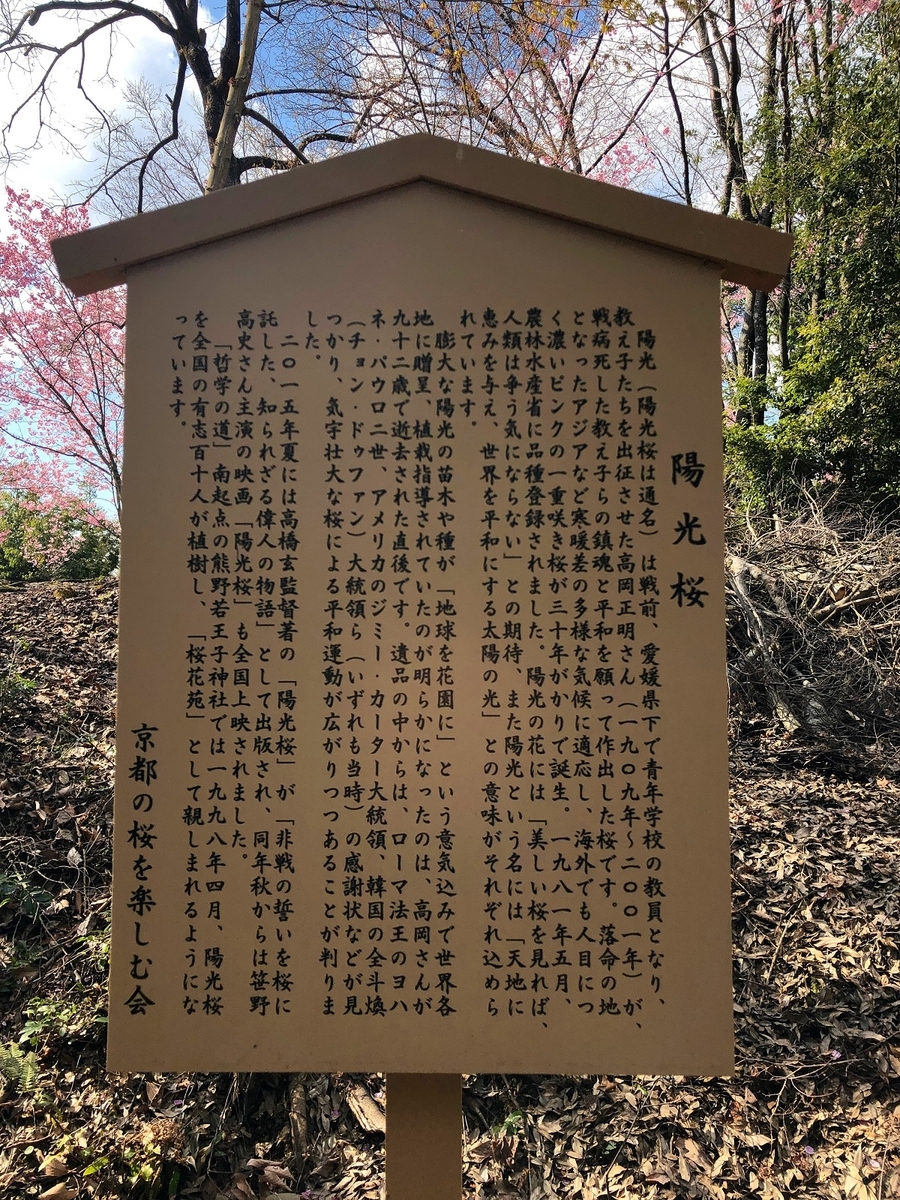 陽光桜
陽光（陽光桜は通名）は戦前、愛媛県下で青年学校の教員となり、
教え子たちを出征させた高岡正明さん（一九〇九年～二〇〇一年）が、
戦病死した教え子らの鎮魂と平和を願って作出した桜です。落命の地
となったアジアなど寒暖差の多様な気候に適応し、海外でも人目につ
く濃いピンクの一重咲き桜が三十年がかりで誕生。一九八一年五月、
農林水産省に品種登録されました。陽光の花には「美しい桜を見れば、
人類は争う気にならない」との期待、また陽光という名には「天地に
恵みを与え、世界を平和にする太陽の光」との意味がそれぞれ込めら
れています。
膨大な陽光の苗木や種が「地球を花園に」という意気込みで世界各
地に贈呈、植栽指導されていたのが明らかになったのは、高岡さんが
九十二歳で逝去された直後です。遺品の中からは、ローマ法王のヨハ
ネ・パウロ二世、アメリカのジミー・カーター大統領、韓国の全斗煥
（チョン・ドゥファン）大統領ら（いずれも当時）の感謝状などが見
つかり、気宇壮大な桜による平和運動が広がりつつあることが判りま
した。
二〇一五年夏には高橋玄監督著の「陽光桜」が、「非戦の誓いを桜に
託した、知られざる偉人の物語」として出版され、同年秋からは笹野
高史さん主演の映画「陽光桜」も全国上映されました。
「哲学の道」南起点の熊野若王子神社では一九九八年四月、陽光桜
を全国の有志百十人が植樹し、「桜花苑」として親しまれるようにな
っています。
京都の桜を楽しむ会